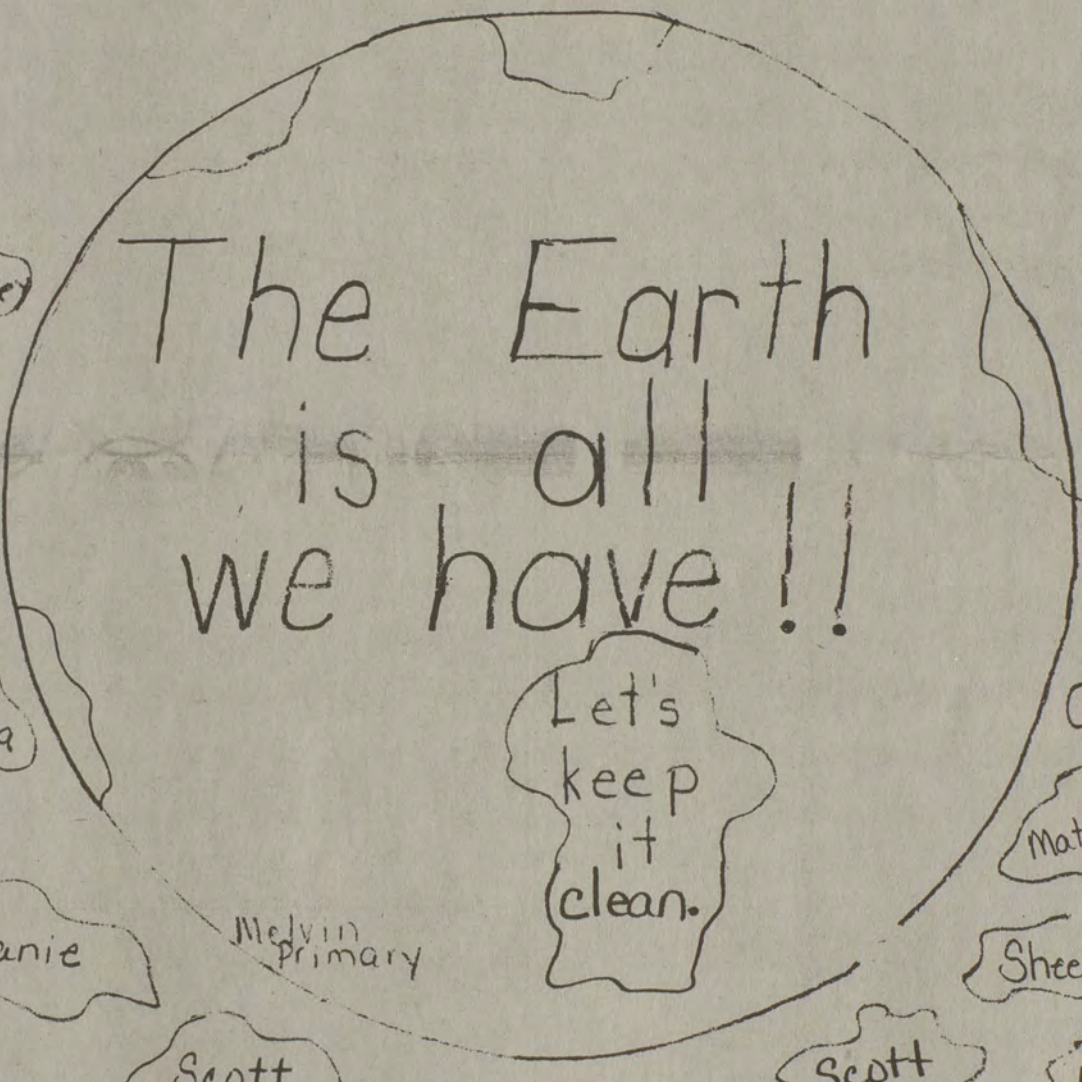 The Earth
is all
we have!!
Let's
keep
it
clean.
Melvin
Primary
Scott
Scott